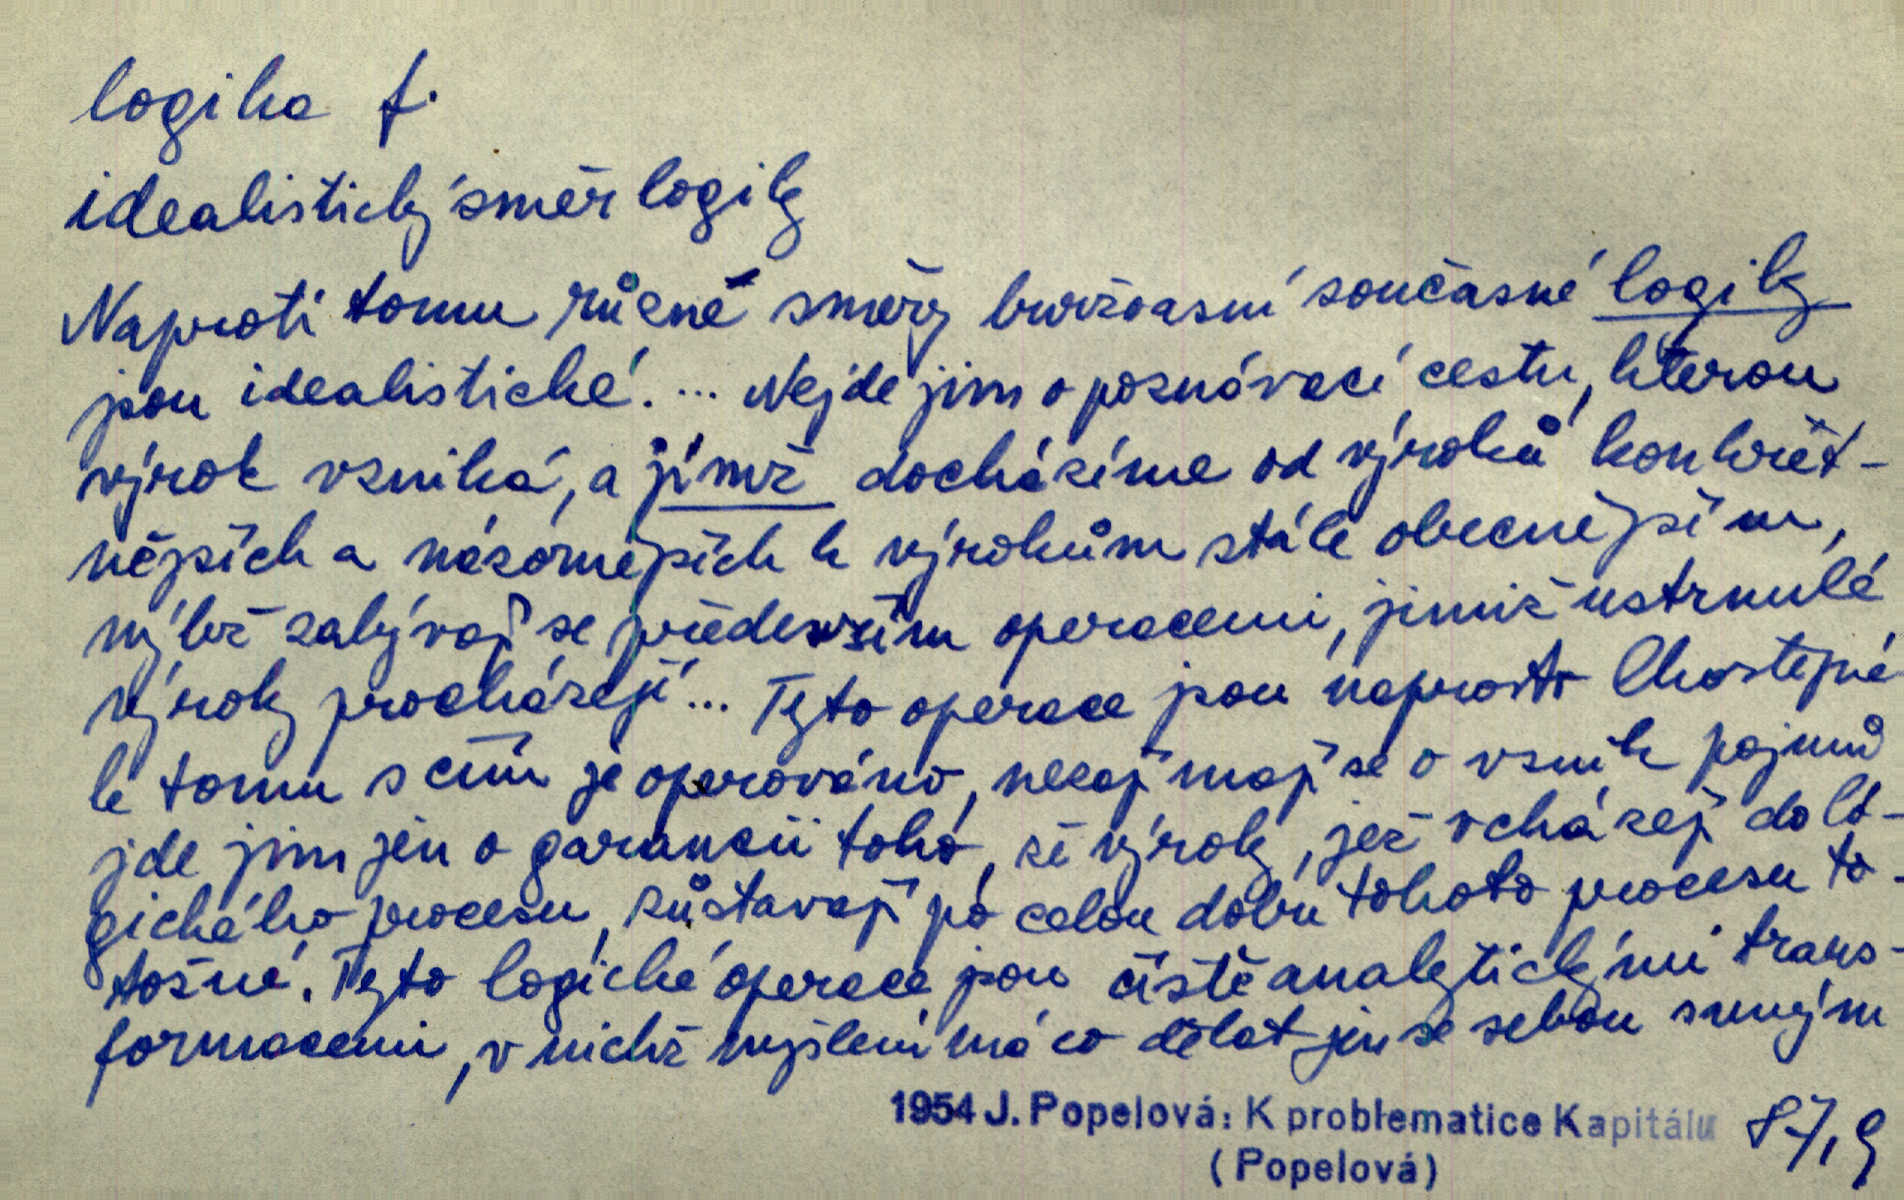 logika f.
idealistický směr logiky
Naproti tomu různé směry buržoasní současné logiky
jsou idealistické. ... Nejde jim o poznávací cestu, kterou
výrok vzniká, a jímž docházíme od výroků konkrét-
nějších a názornějších k výrokům stále obecnějším,
nýbrž zabývají se především operacemi, jimiž ustrnulé
výroky procházejí ... Tyto operace jsou naprosto lhostejné
k tomu s čím je operováno, nezajímají se o vznik pojmů
jde jim jen o garancii toho, že výroky, jež vcházejí do lo-
gického procesu, zůstávají po celou dobu tohoto procesu to-
tožné. Tyto logické operace jsou čistě analytickými trans-
formacemi, v nichž myšlení má co dělat jen se sebou samým
1954 J. Popelová: K problematice Kapitálu 87,9
(Popelová)